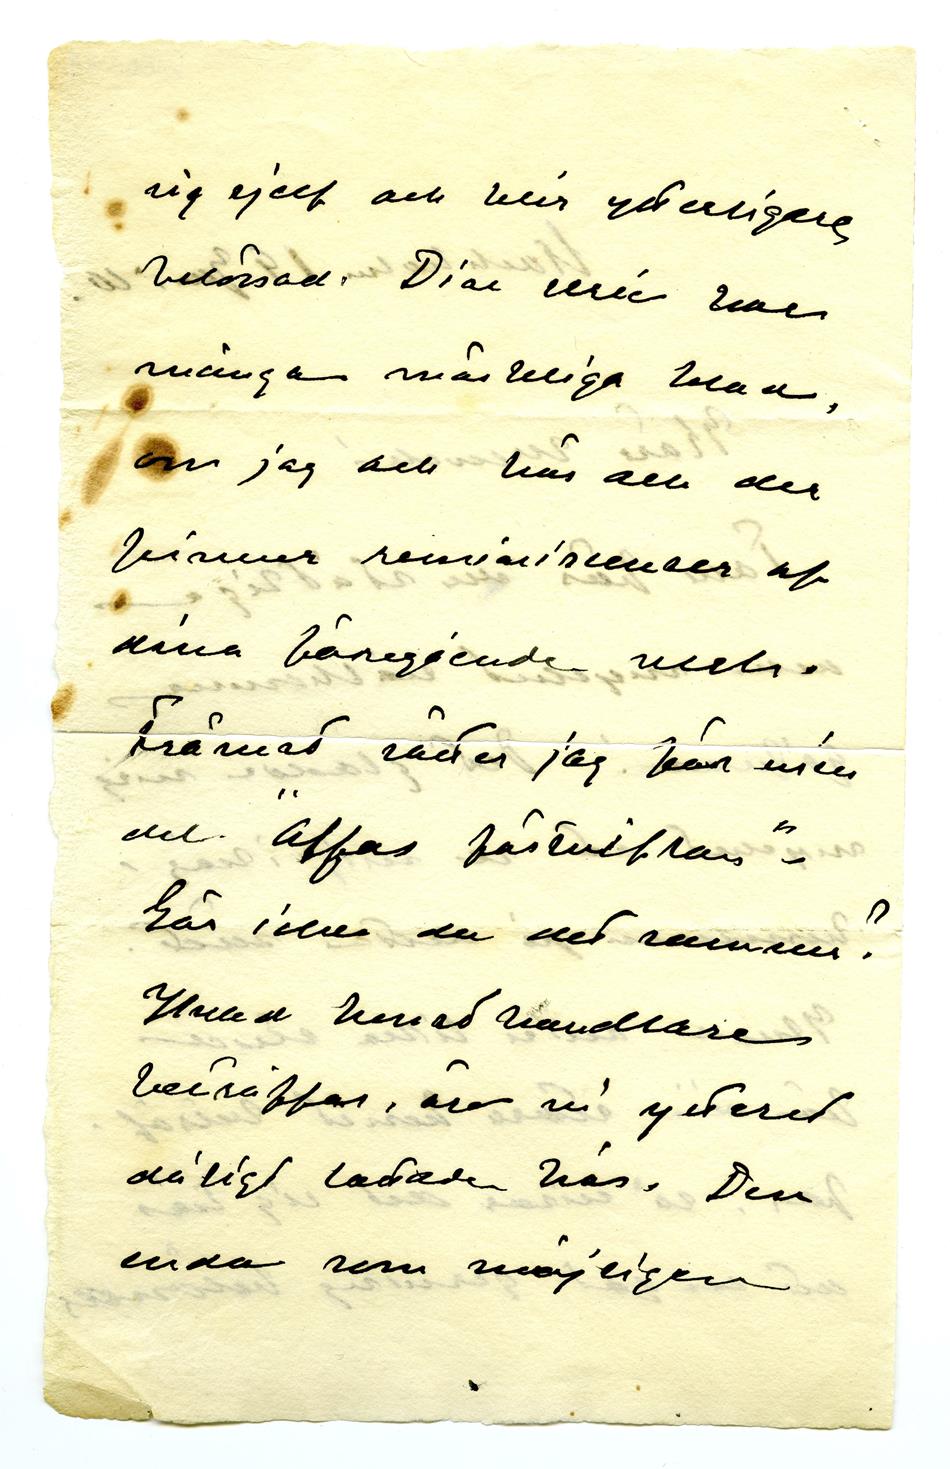 sig sjelf och blir ytterligare
belönad. Din serie har
många märkliga blad,
om jag ock här och der
finner reminiscenser af
dina föregående verk.
Främst sätter jag för min
del "Äffas förtviflan".
Gör icke du det samma?
Hvad konsthandlare
beträffar, äro vi ytterst
dåligt lottade här. Den
enda som möjligen